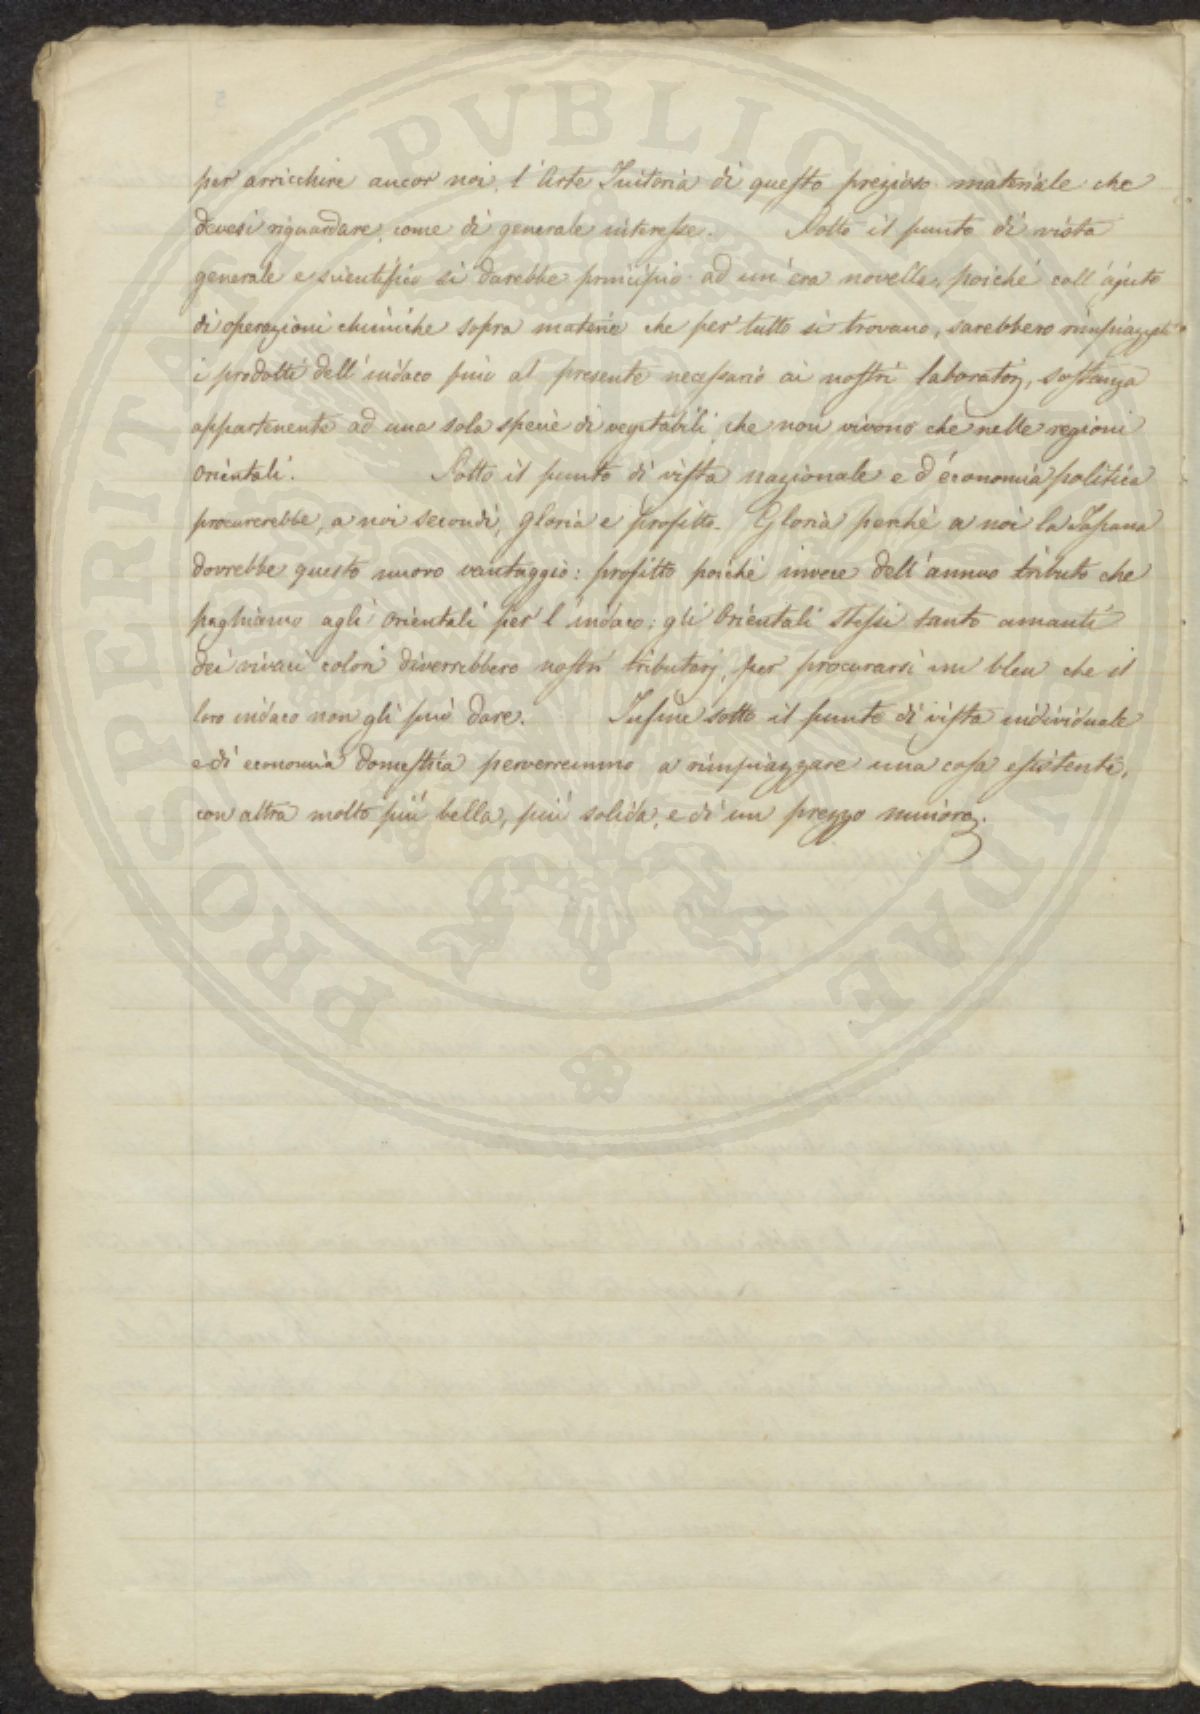 PROSPERITATI PUBLICAE
per arricchire ancor noi, l'Arte Tintoria di questo prezioso materiale che
devesi riguardare, come di generale interesse. Sotto il punto di vista
generale e scientifico si darebbe principio ad un'era novella, poiché coll'ajuto
di operazioni chimiche sopra materie che per tutto si trovano, sarebbero rimpiazzati
i prodotti dell'indaco fino al presente necessario ai nostri laboratorj, sostanza
appartenente ad una sola specie di vegetabili, che non vivono che nelle regioni
orientali. Sotto il punto di vista nazionale e d'economia politica
procurerebbe, a noi secondi, gloria e profitto. Gloria perché a noi la Toscana
dovrebbe questo nuovo vantaggio: profitto poiché invece dell'annuo tributo che
paghiamo agli orientali per l'indaco; gli Orientali stessi tanto amanti
dei vivaci colori diverrebbero nostri tributarj, per procurarsi un bleu che il
loro indaco non gli può dare. Infine sotto il punto di vista individuale
e di economia domestica perverremmo a rimpiazzare una cosa esistente,
con altra molto più bella, più solida, e di un prezzo minore.